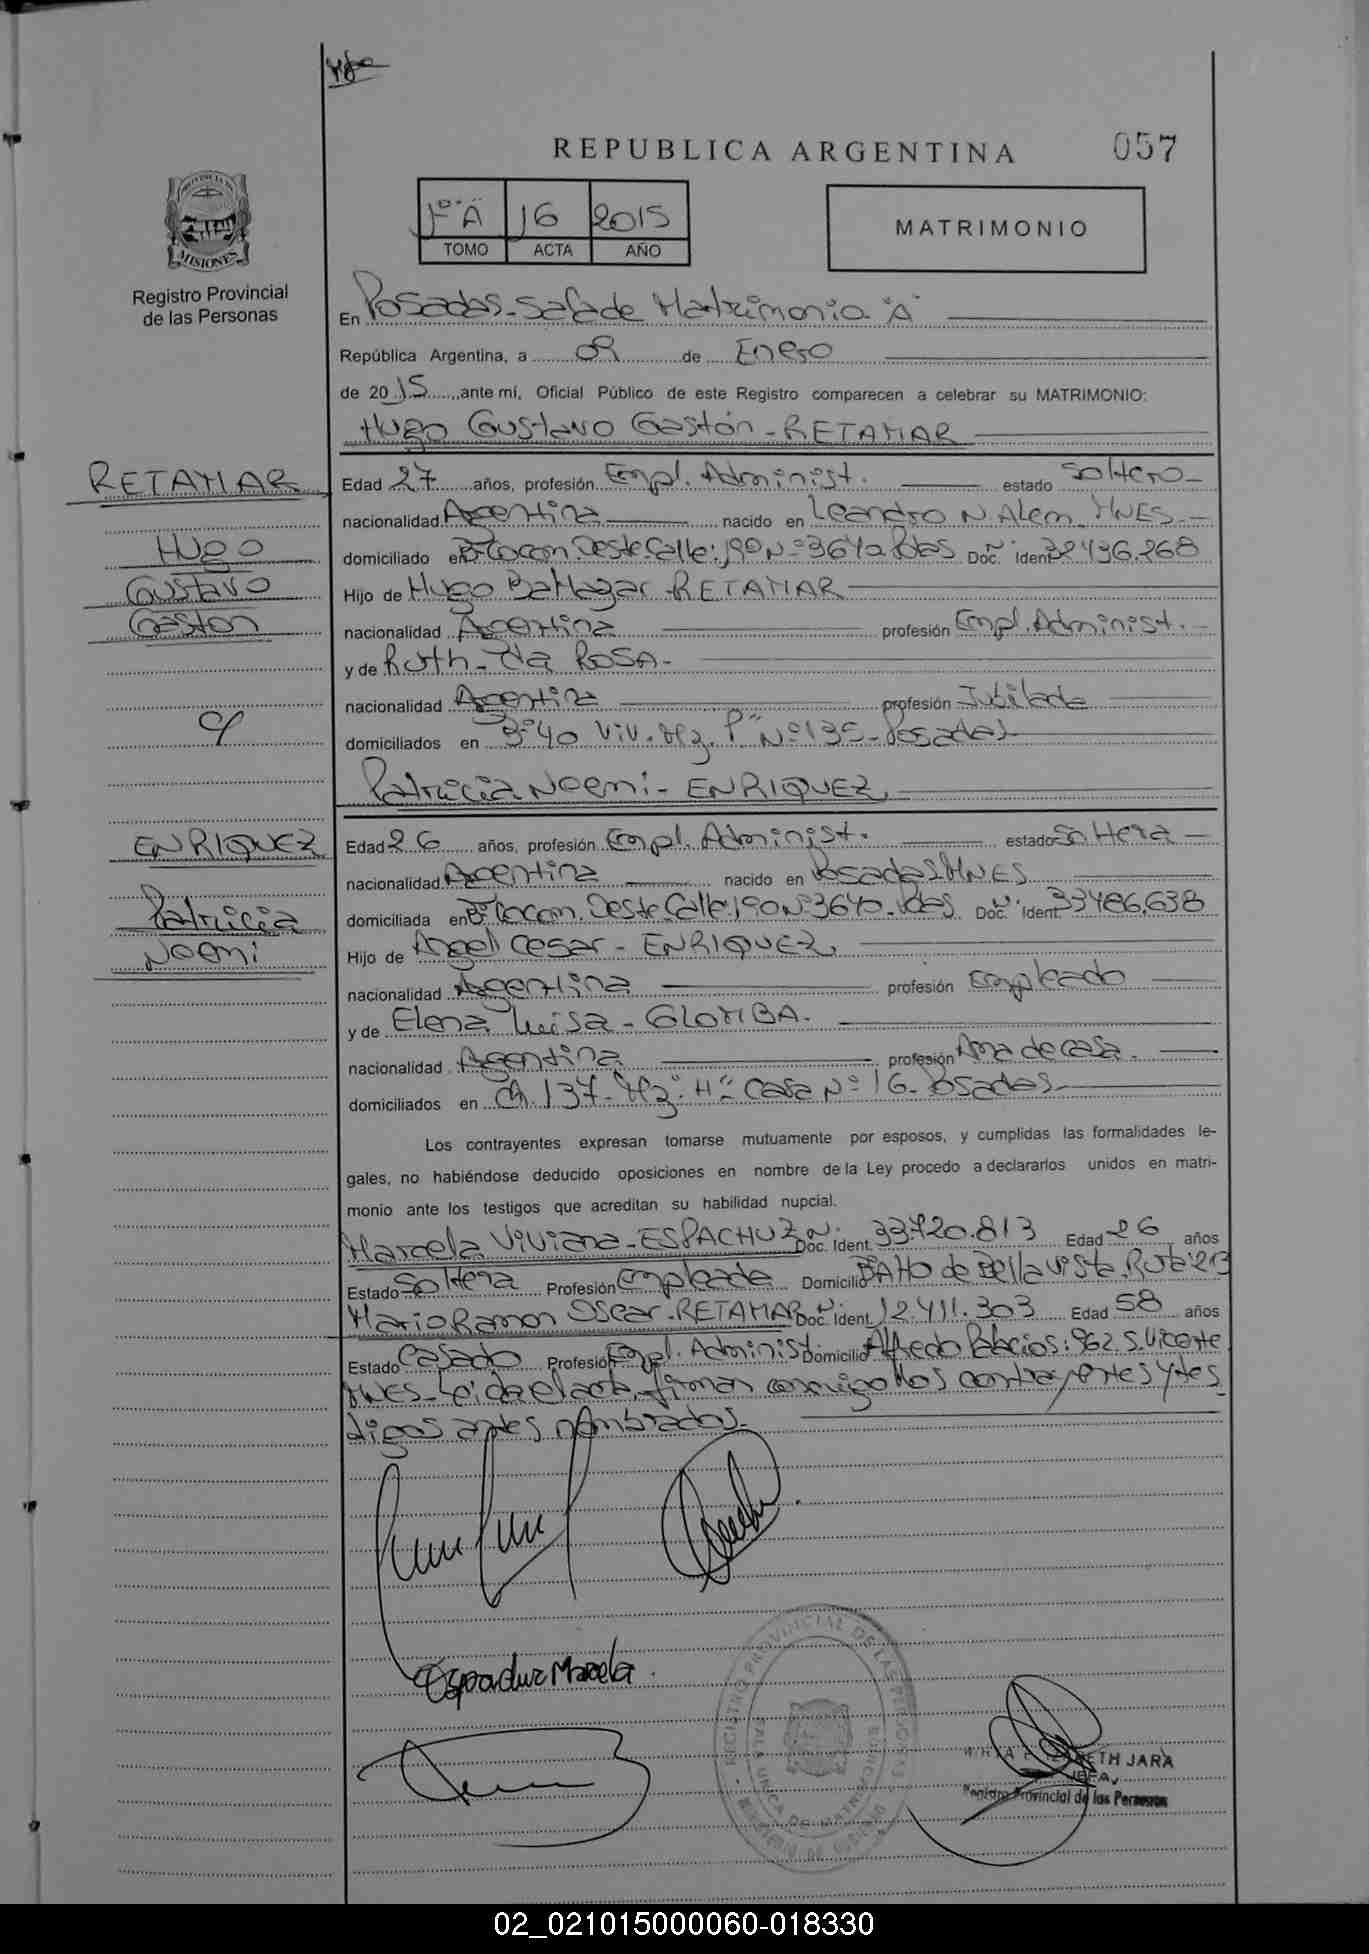 REPUBLICA ARGENTINA 057
1º "A" 16 2015
TOMO ACTA AÑO
MATRIMONIO
MISIONES
Registro Provincial
de las Personas
En Posadas - Sala de Matrimonio "A"
República Argentina, a 09 de Enero
de 2015 ante mí, Oficial Público de este Registro comparecen a celebrar su MATRIMONIO:
Hugo Gustavo Gastón - RETAMAR
RETAMAR
Hugo
Gustavo
Gaston
Edad 27 años, profesión Empl. Administ. estado Soltero
nacionalidad Argentina nacido en Leandro N. Alem. MNES.
domiciliado en Bº Cocom. Oeste. Calle: 190 Nº 3640 Pdas Doc. Ident. 32.436.268
Hijo de Hugo Baltazar - RETAMAR
nacionalidad Argentina profesión Empl. Administ.
y de Ruth - Da ROSA -
nacionalidad Argentina profesión Jubilada
domiciliados en Bº 40 Viv. Mz. P" Nº 135 - Posadas
Patricia Noemi - ENRIQUEZ
c/
ENRIQUEZ
Patricia
Noemi
Edad 26 años, profesión Empl. Administ. estado Soltera
nacionalidad Argentina nacido en Posadas MNES
domiciliada en Bº Cocom. Oeste Calle 190 Nº 3640 Pdas Doc. Ident. 33.486.638
Hijo de Angel Cesar - ENRIQUEZ
nacionalidad Argentina profesión Empleado
y de Elena Luisa - GLOMBA.
nacionalidad Argentina profesión Ama de casa.
domiciliados en Ch. 137 - Mz: "H" Casa Nº 16. Posadas
Los contrayentes expresan tomarse mutuamente por esposos, y cumplidas las formalidades le-
gales, no habiéndose deducido oposiciones en nombre de la Ley procedo a declararlos unidos en matri-
monio ante los testigos que acreditan su habilidad nupcial.
Marcela Viviana - ESPACHUZ Doc. Ident. 33.720.813 Edad 26 años
Estado Soltera Profesión Empleada Domicilio Bº Alto de Bella Vista. Ruta 213
Mario Ramon Oscar - RETAMAR Doc. Ident. 12.411.303 Edad 58 años
Estado Casado Profesión Empl. Administ. Domicilio Alfredo Palacios: 962 S. Vicente
MNES - Leida el acta, firman conmigo los contrayentes y tes
tigos antes nombrados.
Marcela
REGISTRO PROVINCIAL DE LAS PERSONAS
ELIZABETH JARA
JEFA
Registro Provincial de las Personas
02_021015000060-018330